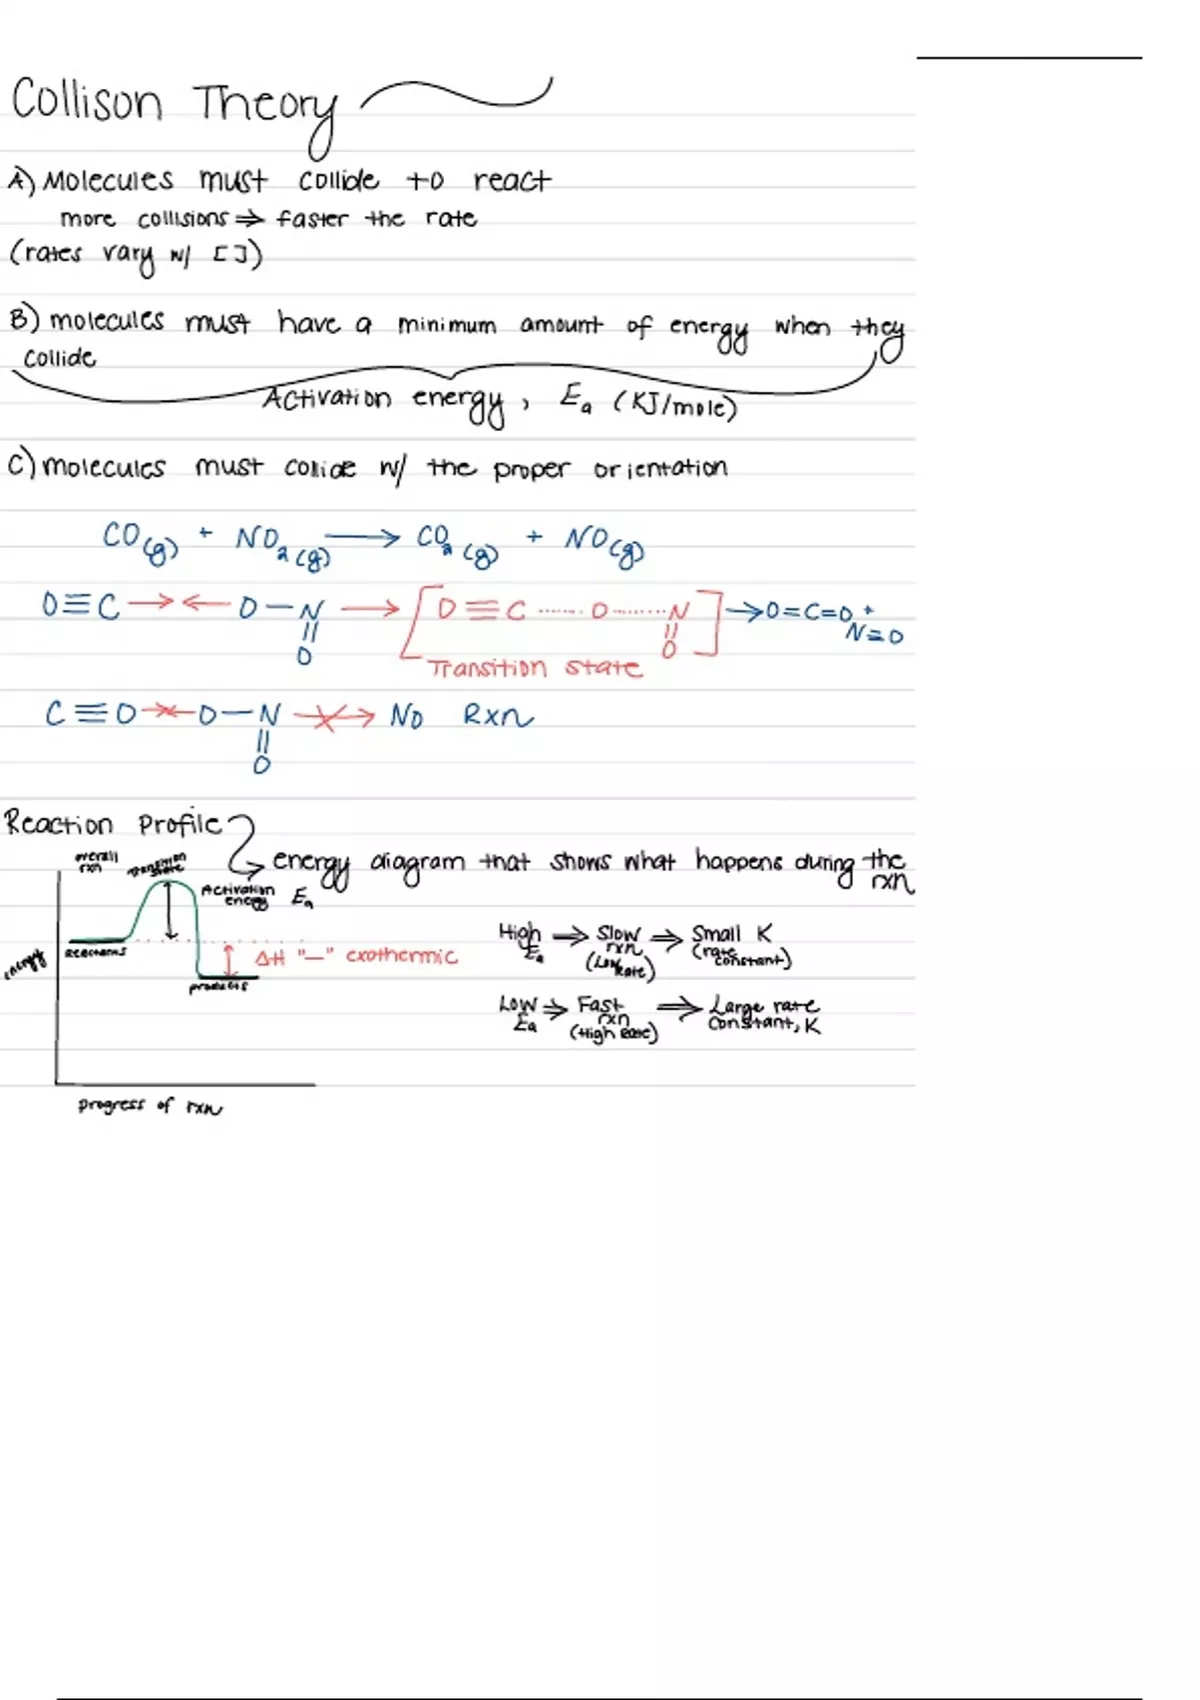 Collison Theory
A) Molecules must collide to react
more collisions ⇒ faster the rate
(rates vary w/ [])
B) molecules must have a minimum amount of energy when they
collide
Activation energy, Ea (KJ/mole)
C) molecules must collide w/ the proper orientation
CO(g) + NO2(g) → CO2(g) + NO(g)
O≡C →← O—N → [O≡C ...... O ....... N] → O=C=O +
N=O
O
O
Transition state
C≡O →← O—N → No Rxn
O
Reaction Profile
energy diagram that shows what happens during the
rxn
overall
rxn
Transition
state
Activation
energy Ea
Reactants
energy
ΔH "—" exothermic
products
progress of rxn
High
Ea
⇒ Slow
rxn
(Low Rate)
⇒ Small K
(rate
constant)
Low
Ea
⇒ Fast
rxn
(High Rate)
⇒ Large rate
constant, K